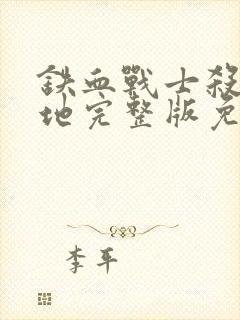 鐵血戰士殺
地完整版免
李平